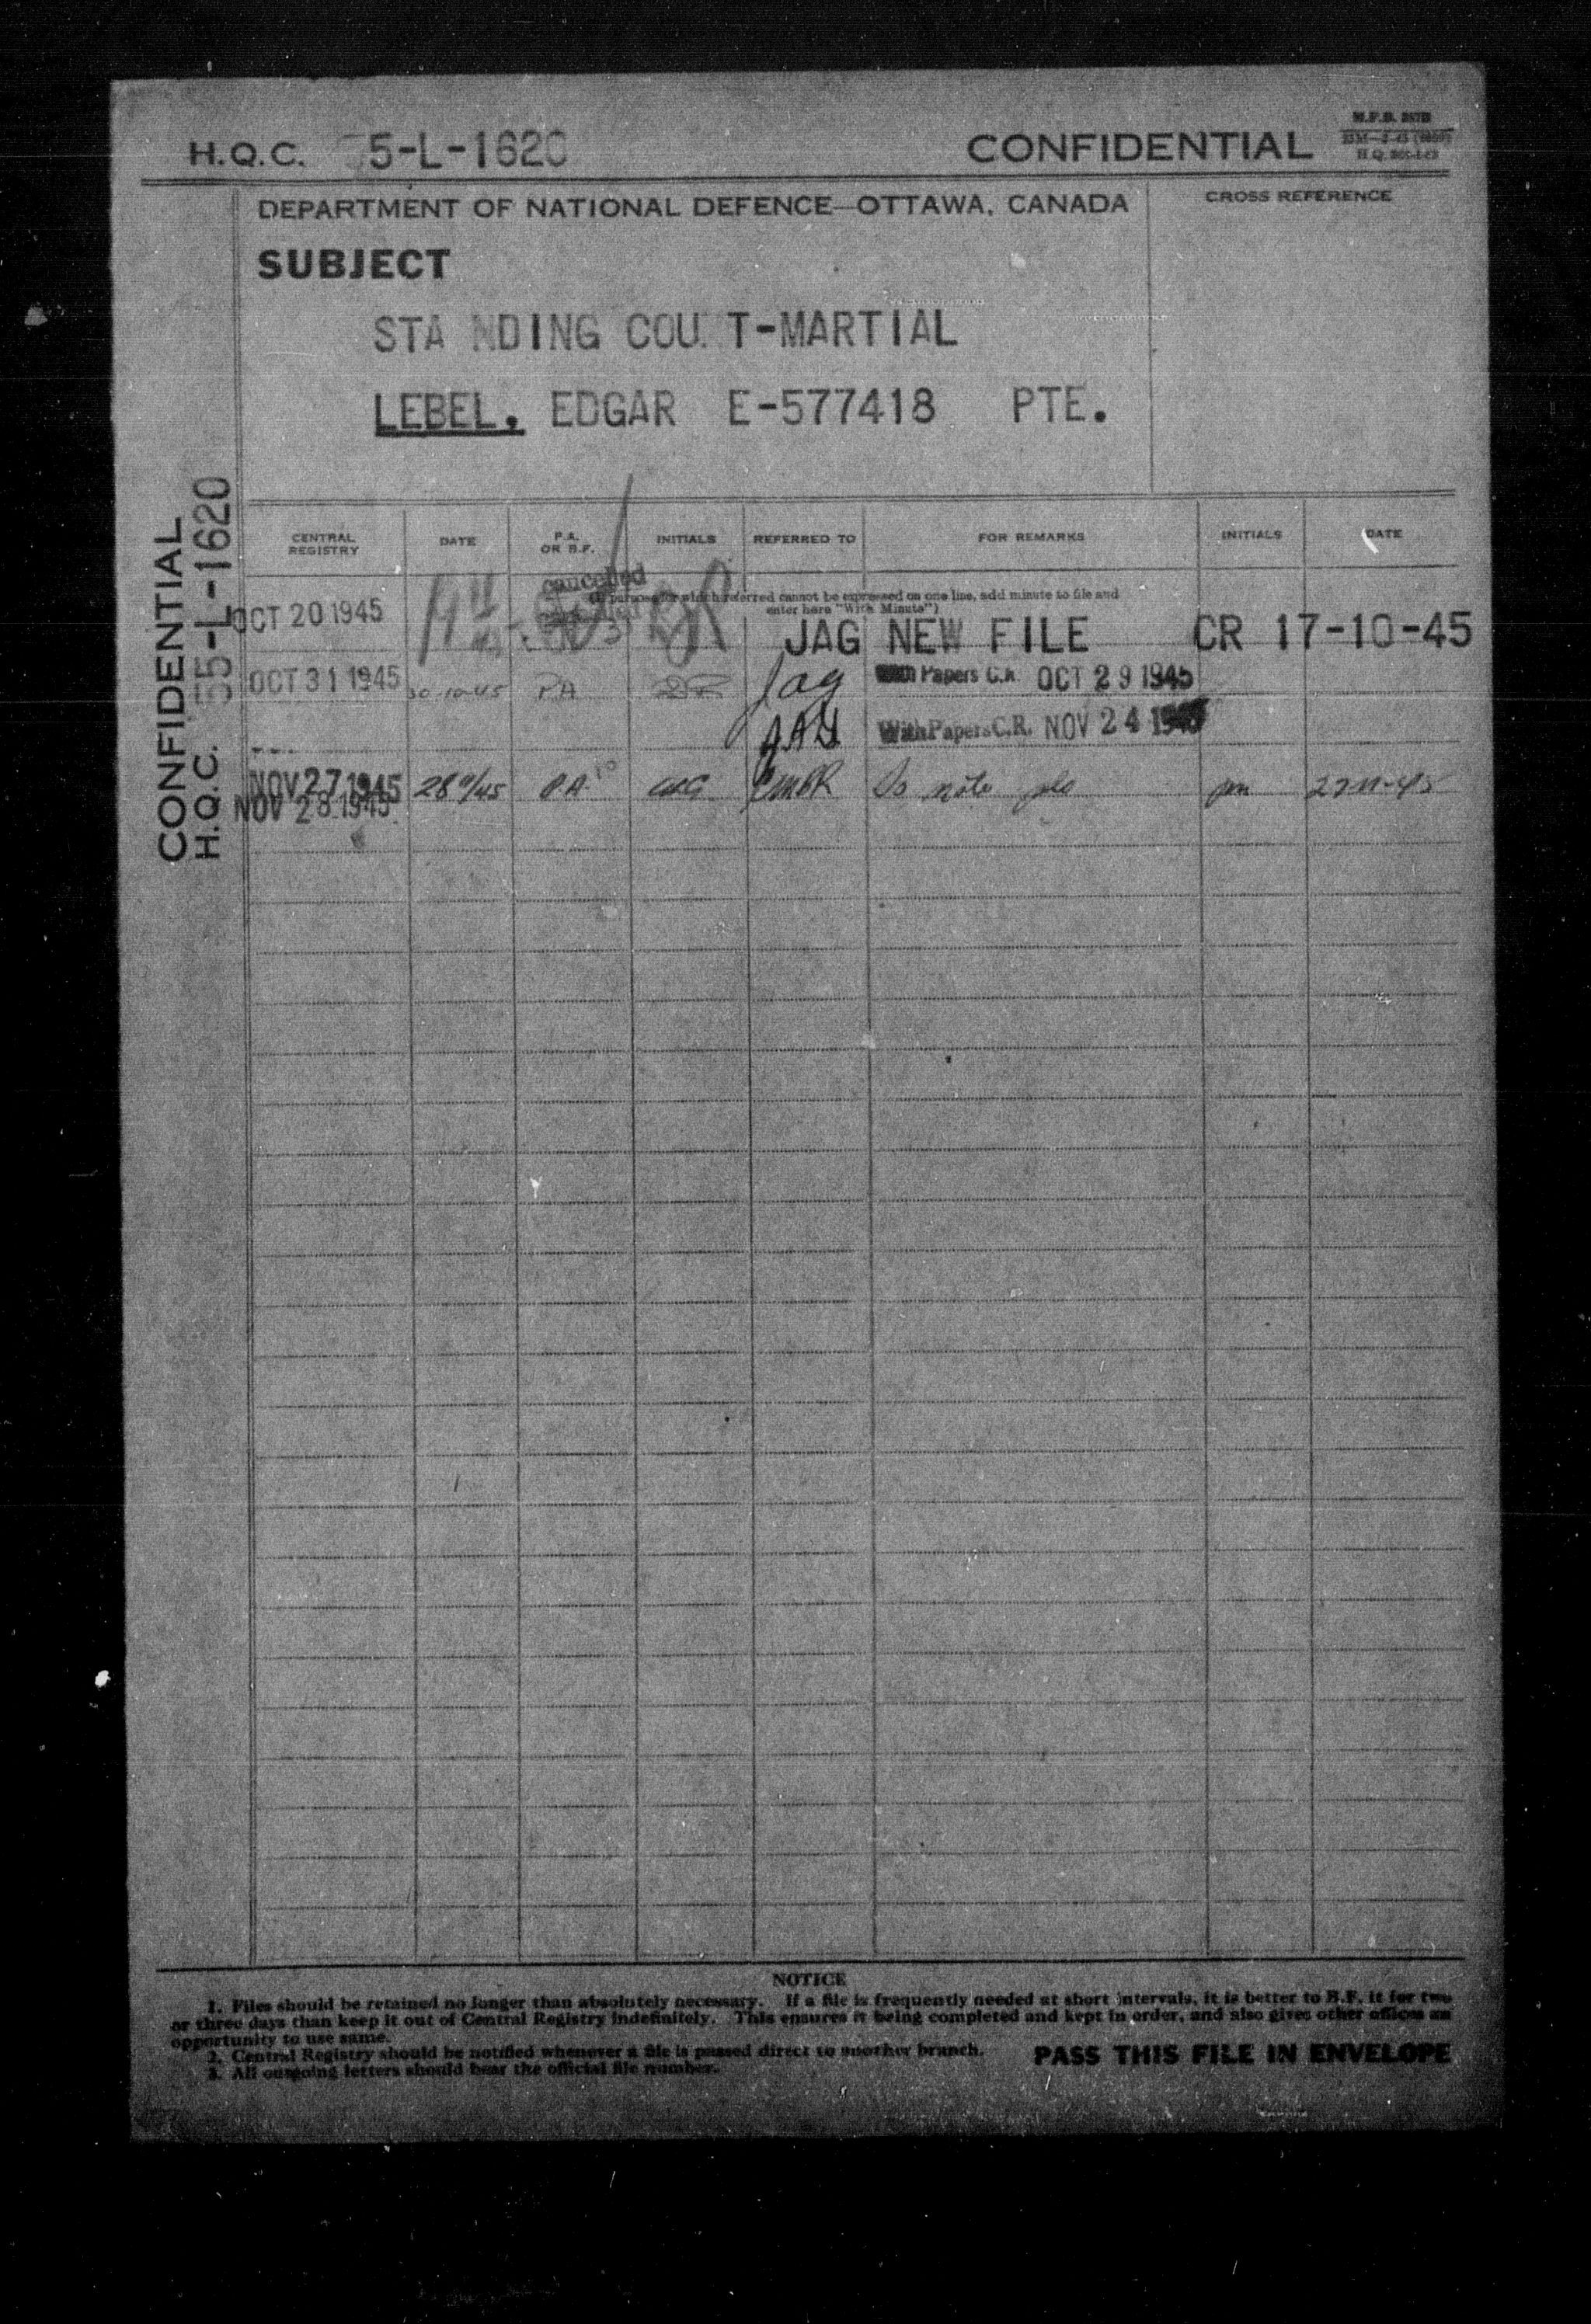 H.Q.C. 55-L-1620
CONFIDENTIAL
DEPARTMENT OF NATIONAL DEFENCE—OTTAWA, CANADA
CROSS REFERENCE
SUBJECT
STA NDING COU T-MARTIAL
LEBEL, EDGAR E-577418 PTE.
CONFIDENTIAL
H.Q.C. 55-L-1620
CENTRAL REGISTRY DATE P.A. OR B.F. INITIALS REFERRED TO FOR REMARKS INITIALS DATE
cancelled
(If purpose for which referred cannot be expressed on one line, add minute to file and
enter here "With Minute")
OCT 20 1945 JAG NEW FILE CR 17-10-45
OCT 31 1945 30-10-45 PA Jag With Papers C.R. OCT 29 1945
JAG With Papers C.R. NOV 24 1945
NOV 27 1945 28 11/45 P.A. To note pls
NOV 28 1945
NOTICE
1. Files should be retained no longer than absolutely necessary. If a file is frequently needed at short intervals, it is better to B.F. it for two
or three days than keep it out of Central Registry indefinitely. This ensures it being completed and kept in order, and also gives other offices an
opportunity to use same.
2. Central Registry should be notified whenever a file is passed direct to another branch.
3. All outgoing letters should bear the official file number.
PASS THIS FILE IN ENVELOPE